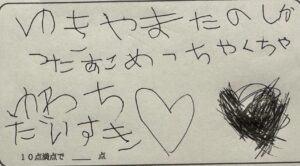 ゆきやまたのしか
ったあこめっちゃくちゃ
ゆっち
だいすき
10点満点で 点